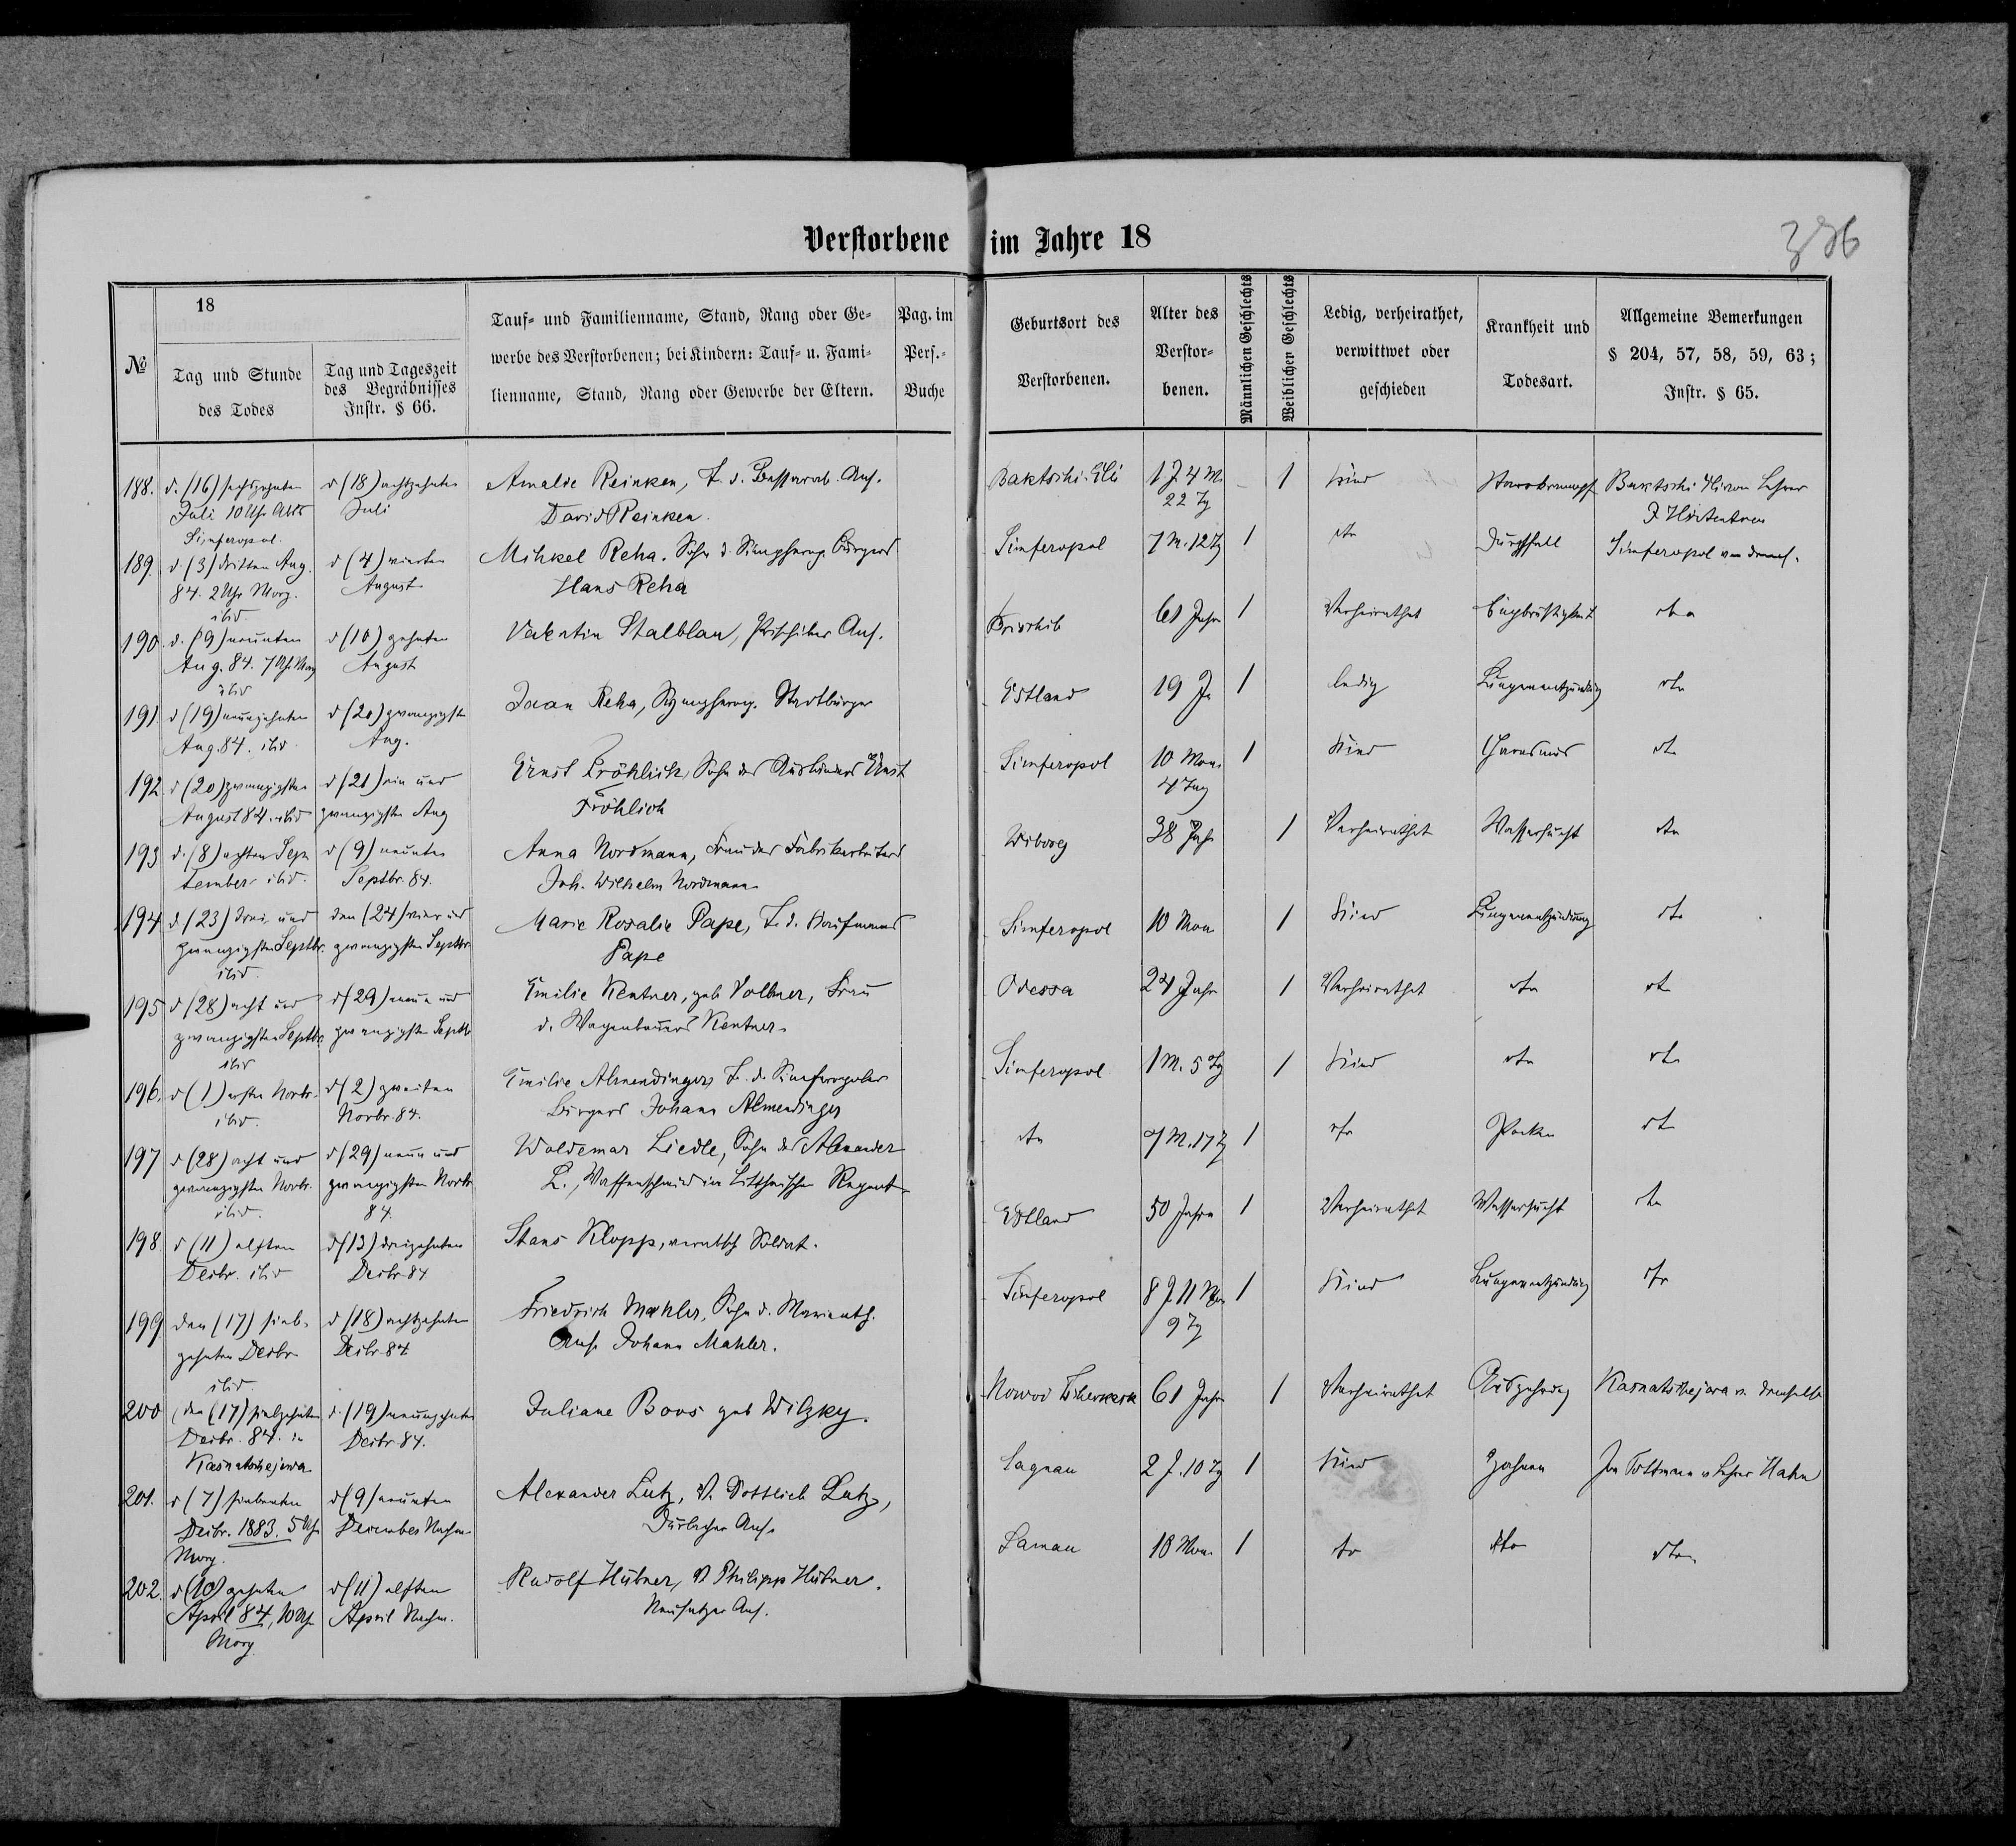 Verstorbene im Jahre 18
376
18
№
Tag und Stunde
des Todes
Tag und Tageszeit
des Begräbnisses
Instr. § 66.
Tauf- und Familienname, Stand, Rang oder Ge-
werbe des Verstorbenen; bei Kindern: Tauf- u. Fami-
lienname, Stand, Rang oder Gewerbe der Eltern.
Pag. im
Pers.-
Buche
Geburtsort des
Verstorbenen.
Alter des
Verstor-
benen.
Männlichen Geschlechts
Weiblichen Geschlechts
Ledig, verheirathet,
verwittwet oder
geschieden
Krankheit und
Todesart.
Allgemeine Bemerkungen
§ 204, 57, 58, 59, 63;
Instr. § 65.
188.
d. (16) sechszehnten
Juli 10 Uhr Abds
Simferopol.
d (18) achtzehnten
Juli
Amalie Reinken, T. d. Bessarab. Ans.
David Reinken.
Baktschi-Eli
1 J 4 M.
22 Tg
1
Kind
Starrkrampf
Baktschi Eli von Lehrer
189.
d (3) dritten Aug.
84. 2 Uhr Morg.
ibid.
d (4) vierten
August
Mihkel Reha. Sohn d. Simpherop. Bürgers
Hans Reha
Simferopol
7 M. 12 Tg
1
dto
Durchfall
Simferopol von
190.
d. (9) neunten
Aug. 84. 7 Uhr Morg
ibid
d (10) zehnten
August
Valentin Stalblau, Prischiber Ans.
Prischib
61 Jahr
1
Verheirathet
Engbrüstigkeit
dto
191.
d (19) neunzehnten
Aug. 84. ibid.
d (20) zwanzigsten
Aug.
Jaan Reha, Sympherop. Stadtbürger
Estland
19 Ja
1
ledig
Lungenentzündung
dto
192.
d (20) zwanzigsten
August 84. ibid
d (21) ein und
zwanzigsten Aug
Ernst Fröhlich, Sohn des Ausländers Ernst
Fröhlich
Simferopol
10 Mon.
4 Tag
1
Kind
dto
193
d. (8) achten Sep
tember ibid.
d (9) neunten
Septbr. 84.
Anna Nordmann, Frau des Fabrikarbeiters
Joh. Wilhelm Nordmann
Wiborg
38 Jahr
1
Verheirathet
Wassersucht
dto
194
d (23) drei und
zwanzigsten Septbr.
ibid.
den (24) vier und
zwanzigsten Septbr
Marie Rosalie Pape, T. d. Kaufmanns
Pape
Simferopol
10 Mon
1
Kind
Lungenentzündung
dto
195
d (28) acht und
zwanzigsten Septbr
ibid
d (29) neun und
zwanzigsten Septbr
Emilie Kentner, geb Vollmer, Frau
d. Wagenbauers Kentner.
Odessa
24 Jahr
1
Verheirathet
dto
dto
196.
d (1) ersten Novbr.
ibid.
d (2) zweiten
Novbr. 84.
Emilie Almendinger, T. d. Simferopoler
Bürgers Johann Almendinger
Simferopol
1 M. 5 Tg
1
Kind
dto
dto
197
d (28) acht und
zwanzigsten Novbr.
ibid.
d (29) neun und
zwanzigsten Novbr
84.
Woldemar Liedle, Sohn des Alexander
L., Waffenschmid im Litthauischen Regmt
dto
7 M. 17 Tg
1
dto
Pocken
dto
198
d (11) elften
Decbr. ibid
d (13) dreizehnten
Decbr 84
Stans Klopp, verabsch Soldat.
Estland
50 Jahre
1
Verheirathet
Wassersucht
dto
199
den (17) sieb-
zehnten Decbr
ibid.
d (18) achtzehnten
Decbr 84
Friedrich Mahler, Sohn d. Marienth.
Ans. Johann Mahler.
Simferopol
8 J. 11 Mon
9 Tg
1
Kind
Lungenentzündung
dto
200
den (17) siebzehnten
Decbr. 84. in
Karnatschejewa
d. (19) neunzehnten
Decbr. 84.
Juliane Boos geb Wilzky.
Nowo Tscherkask
61 Jahr
1
Verheirathet
Auszehrung
Karnatschejewa v. demselbe
201.
d (7) siebenten
Decbr. 1883. 5 Uhr
Morg.
d (9) neunten
December Nachm.
Alexander Lutz, V. Gottlieb Lutz,
Durlacher Ans.
2 J. 10 Tg
1
Kind
Zahnen
v Lehrer Hahn
202.
d (10) zehnten
April 84, 10 Uhr
Morg.
d (11) elften
April Nachm.
Rudolf Hübner, V Philipp Hübner.
Neusatzer Ans.
18 Mon.
1
dto
dto
dto